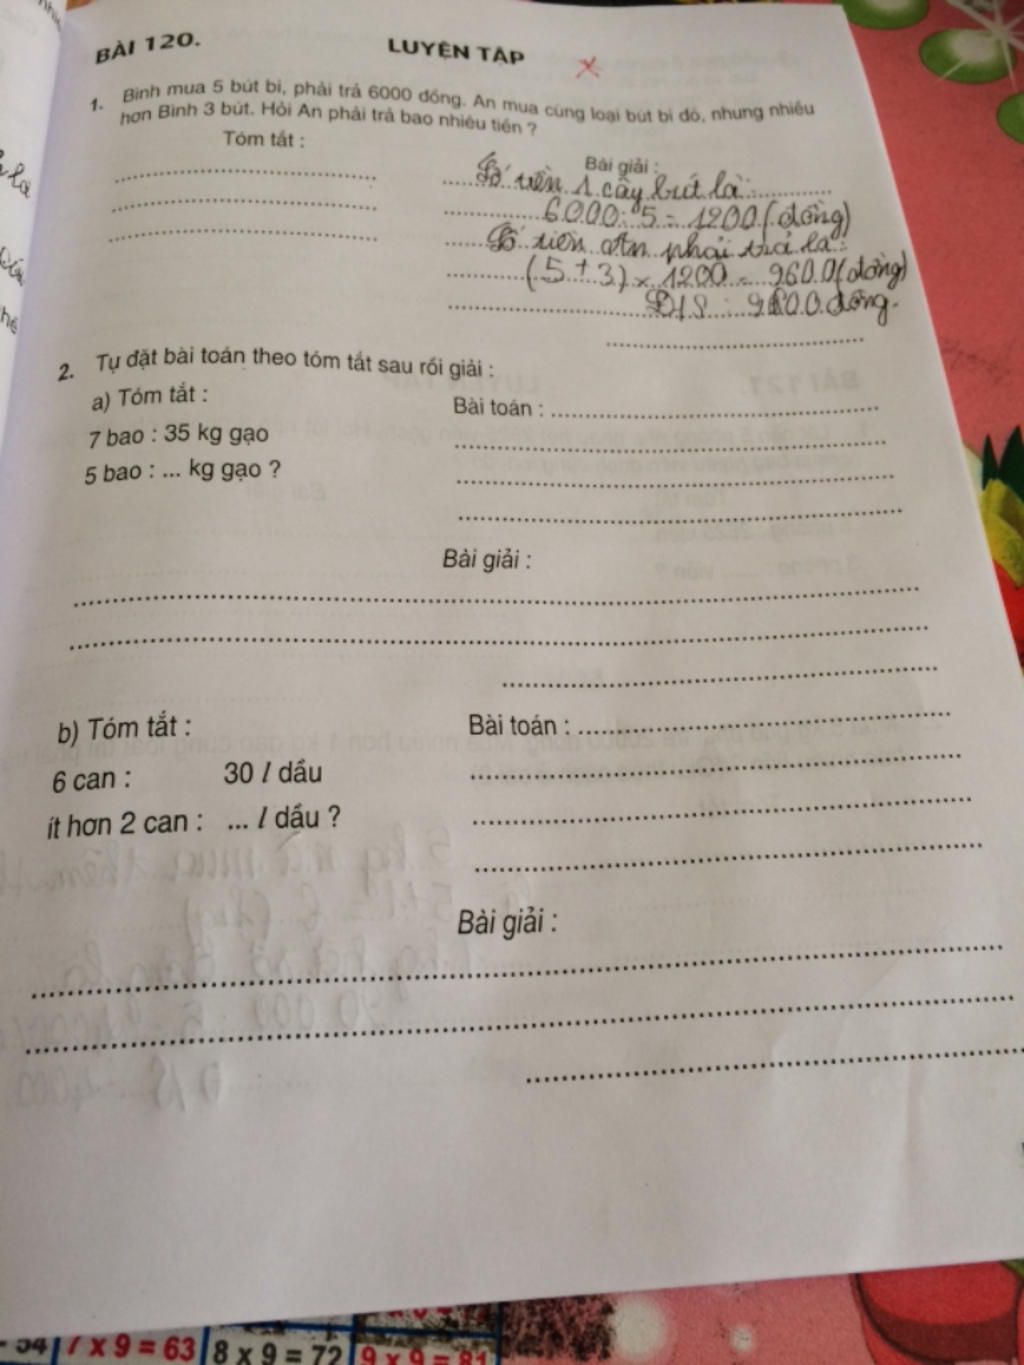 BÀI 120.
LUYỆN TẬP
1. Bình mua 5 bút bi, phải trả 6000 đồng. An mua cùng loại bút bi đó, nhưng nhiều
hơn Bình 3 bút. Hỏi An phải trả bao nhiêu tiền ?
Tóm tắt :
Bài giải :
Số tiền 1 cây bút là:
6000 : 5 = 1200 (đồng)
Số tiền An phải trả là:
(5 + 3) x 1200 = 9600 (đồng)
Đ/S : 9600 đồng.
2. Tự đặt bài toán theo tóm tắt sau rồi giải :
a) Tóm tắt :
Bài toán :
7 bao : 35 kg gạo
5 bao : ... kg gạo ?
Bài giải :
b) Tóm tắt :
Bài toán :
6 can : 30 l dầu
ít hơn 2 can : ... l dầu ?
Bài giải :
54 7 x 9 = 63 8 x 9 = 72 9 x 9 = 81